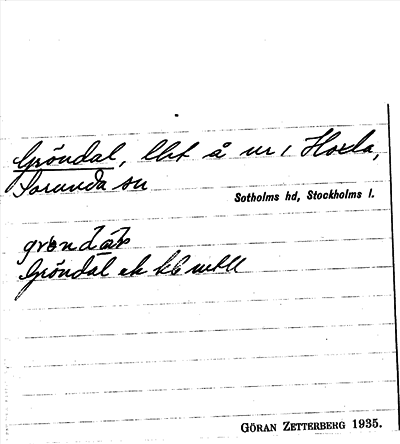 Gröndal, lht å nr 1 Hoxla,
Sorunda sn
Sotholms hd, Stockholms l.
gröndal
Gröndal ek
GÖRAN ZETTERBERG 1935.